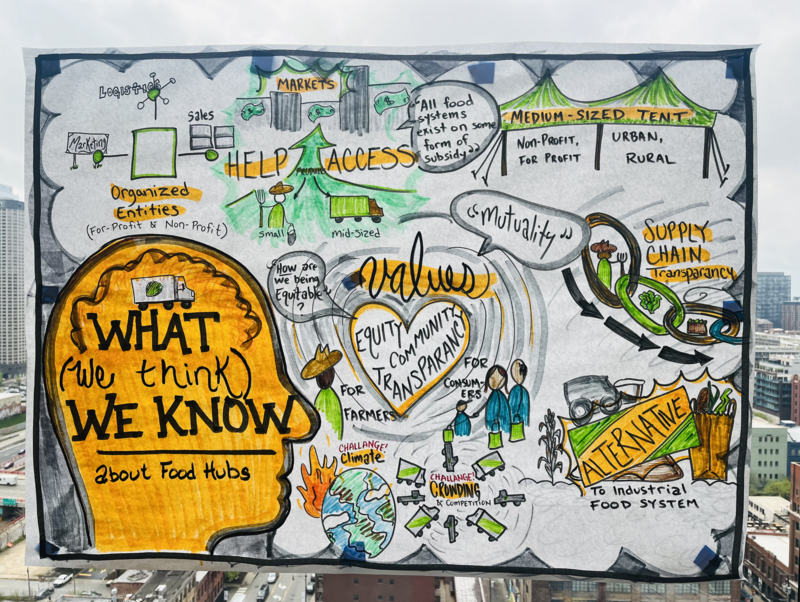 LOGISTICS
Marketing
Sales
Organized
Entities
(For-Profit & Non-Profit)
MARKETS
HELP ACCESS
Small
mid-sized
"All food
systems
exist on some
form of
subsidy"
MEDIUM-SIZED TENT
Non-Profit,
FOR PROFIT
URBAN,
RURAL
"mutuality"
SUPPLY
CHAIN
Transparency
WHAT
(we think)
WE KNOW
about Food Hubs
How are
we being
Equitable
?
values
EQUITY
COMMUNITY
TRANSPARANCY
FOR
FARMERS
FOR
CONSUM-
ERS
CHALLANGE!
Climate
CHALLANGE!
CROWDING
& COMPETITION
ALTERNATIVE
To Industrial
FOOD SYSTEM